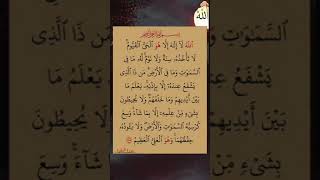 الله
ٱللَّهُ لَآ إِلَٰهَ إِلَّا هُوَ ٱلْحَىُّ ٱلْقَيُّومُ
لَا تَأْخُذُهُۥ سِنَةٌ وَلَا نَوْمٌ لَّهُۥ مَا فِى
ٱلسَّمَٰوَٰتِ وَمَا فِى ٱلْأَرْضِ مَن ذَا ٱلَّذِى
يَشْفَعُ عِندَهُۥٓ إِلَّا بِإِذْنِهِۦ يَعْلَمُ مَا
بَيْنَ أَيْدِيهِمْ وَمَا خَلْفَهُمْ وَلَا يُحِيطُونَ
بِشَىْءٍ مِّنْ عِلْمِهِۦٓ إِلَّا بِمَا شَآءَ وَسِعَ
كُرْسِيُّهُ ٱلسَّمَٰوَٰتِ وَٱلْأَرْضَ وَلَا يَـُٔودُهُۥ
حِفْظُهُمَا وَهُوَ ٱلْعَلِىُّ ٱلْعَظِيمُ